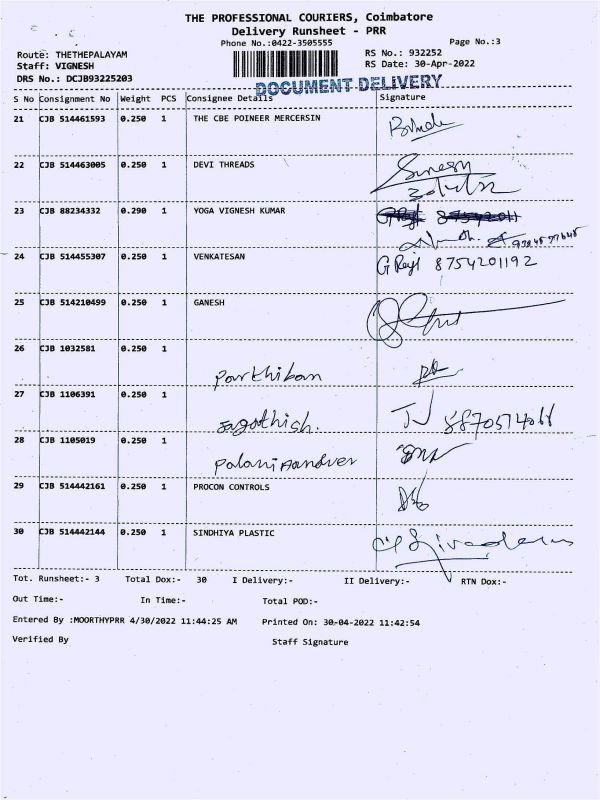 THE PROFESSIONAL COURIERS, Coimbatore
Delivery Runsheet - PRR
Phone No.:0422-3505555 Page No.:3
Route: THETHEPALAYAM RS No.: 932252
Staff: VIGNESH RS Date: 30-Apr-2022
DRS No.: DCJB93225203
DOCUMENT DELIVERY
S No Consignment No Weight PCS Consignee Details Signature
21 CJB 514461593 0.250 1 THE CBE POINEER MERCERSIN
22 CJB 514463005 0.250 1 DEVI THREADS
23 CJB 88234332 0.290 1 YOGA VIGNESH KUMAR
24 CJB 514455307 0.250 1 VENKATESAN 8754201192
25 CJB 514210499 0.250 1 GANESH
26 CJB 1032581 0.250 1
Parthiban
27 CJB 1106391 0.250 1
Jagathish.
28 CJB 1105019 0.250 1
29 CJB 514442161 0.250 1 PROCON CONTROLS
30 CJB 514442144 0.250 1 SINDHIYA PLASTIC
Tot. Runsheet:- 3 Total Dox:- 30 I Delivery:- II Delivery:- RTN Dox:-
Out Time:- In Time:- Total POD:-
Entered By :MOORTHYPRR 4/30/2022 11:44:25 AM Printed On: 30-04-2022 11:42:54
Verified By Staff Signature